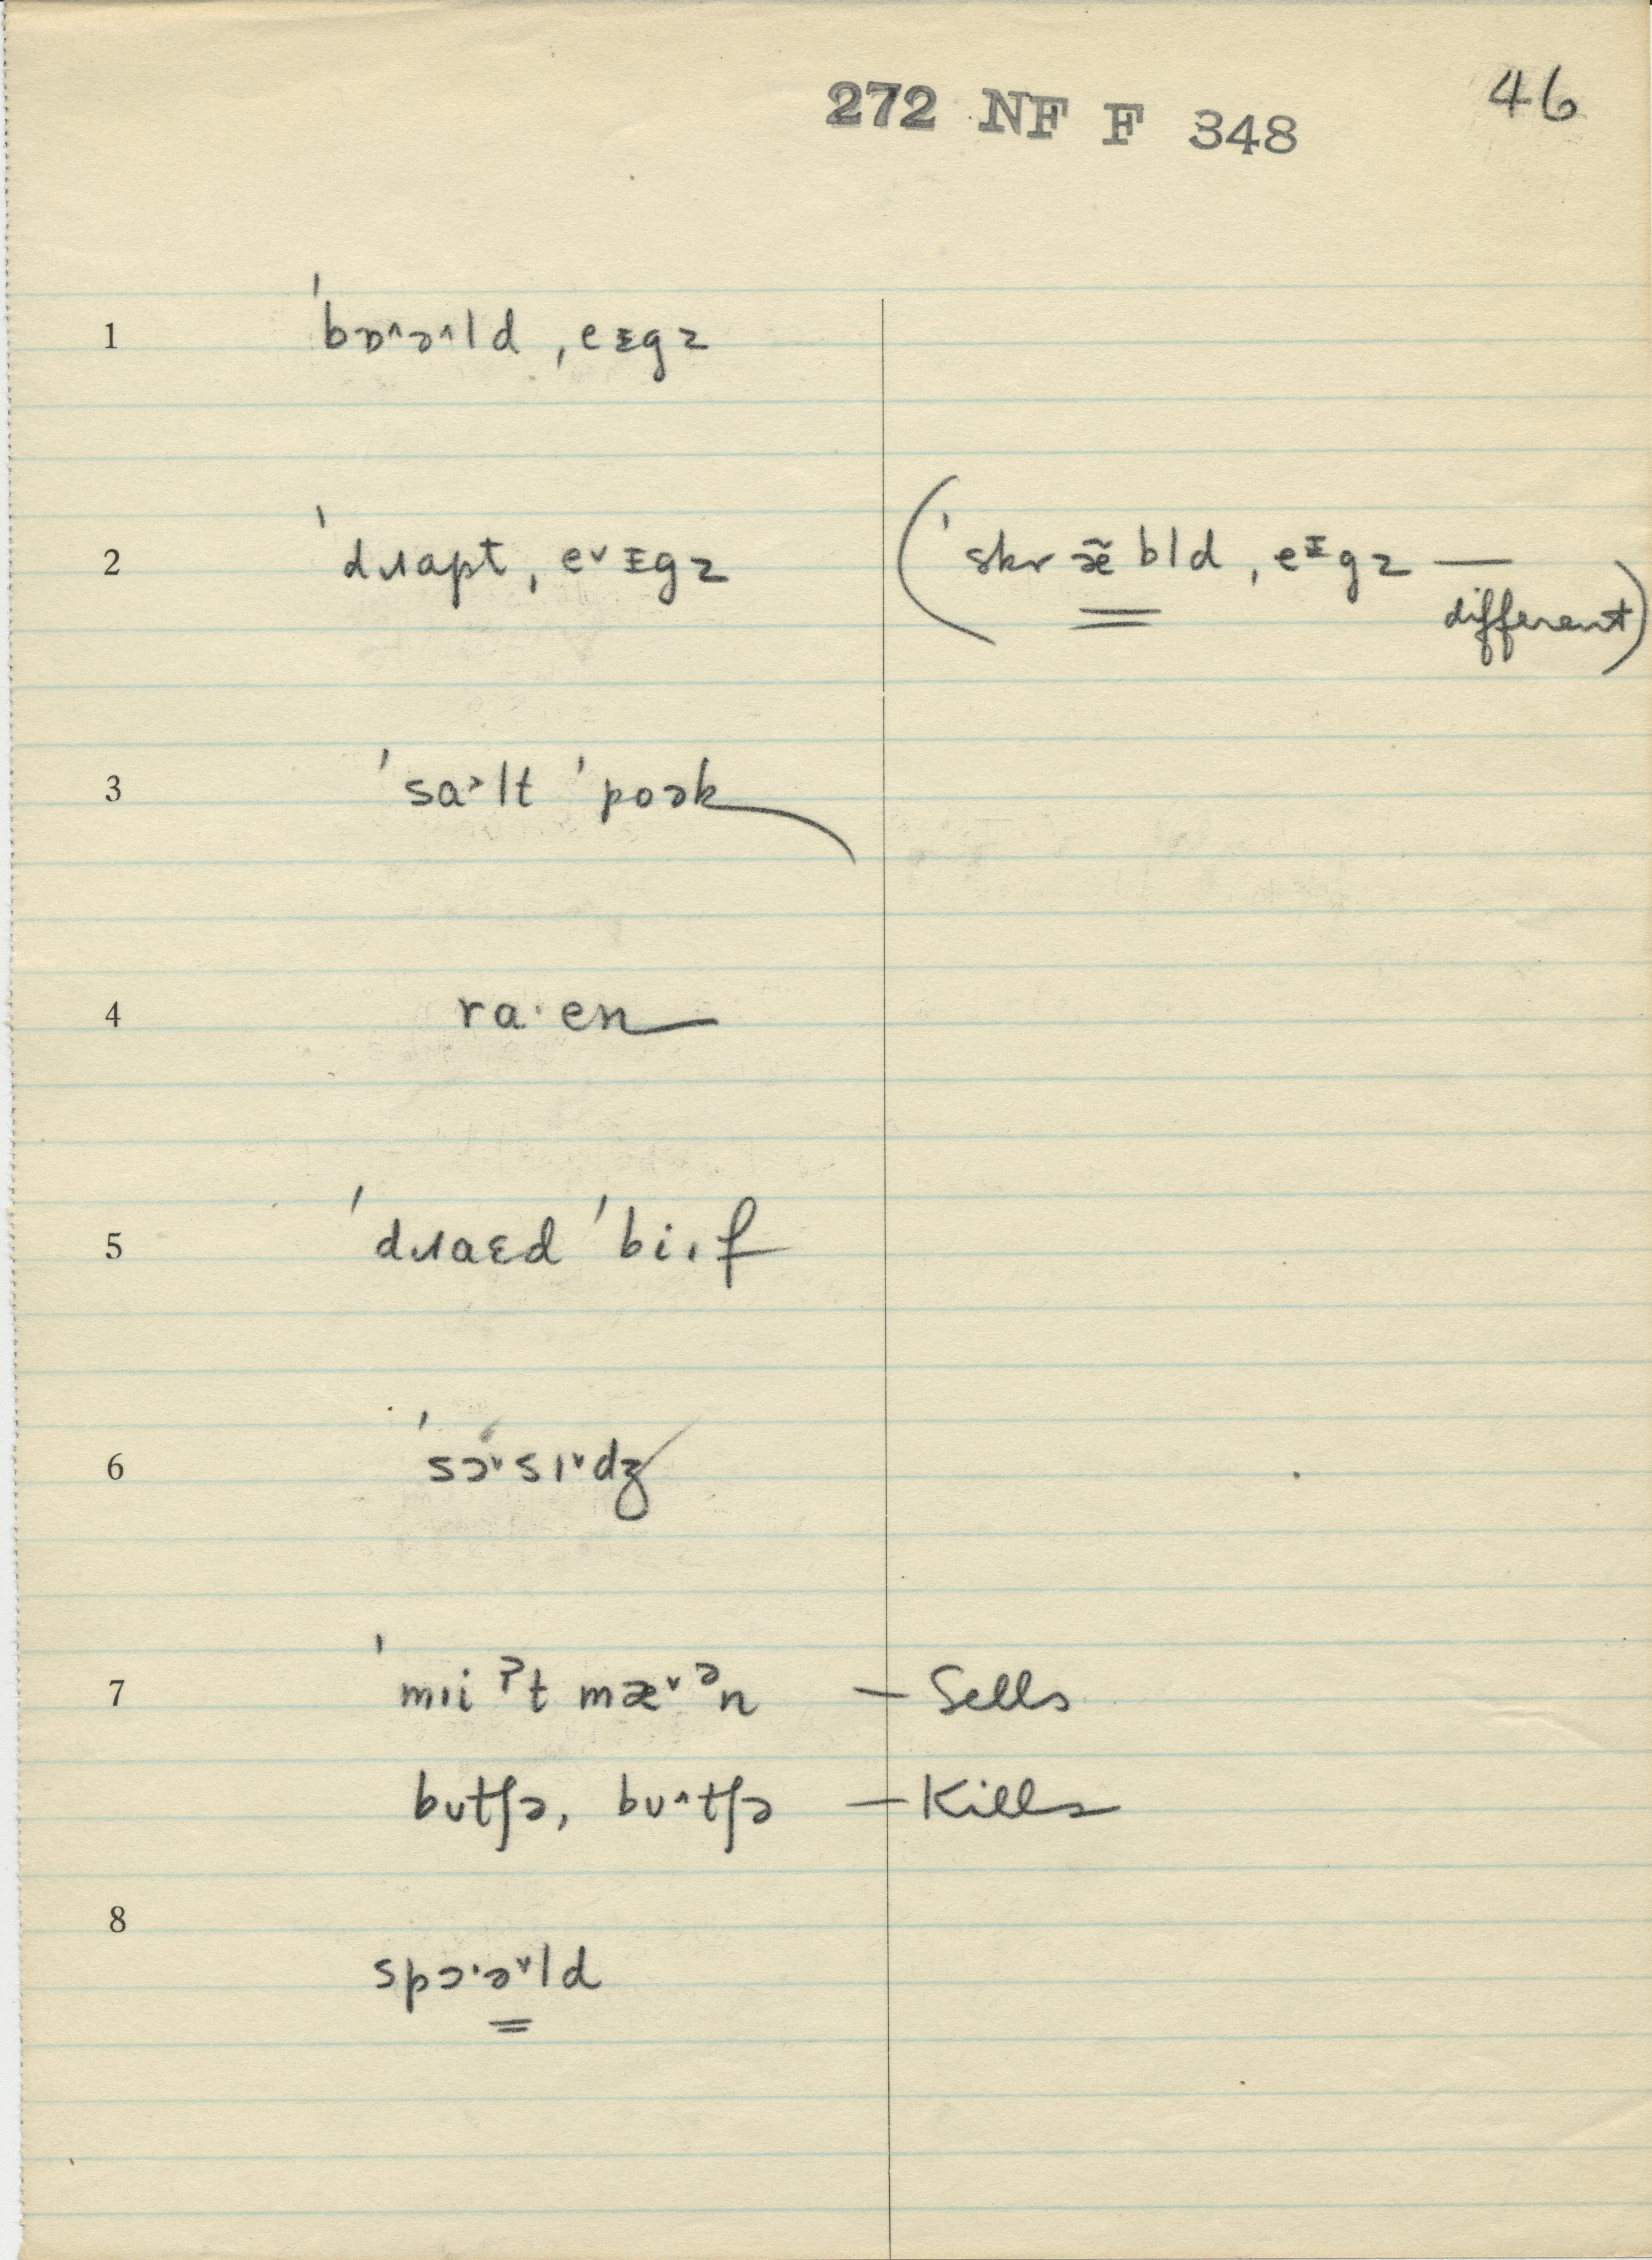 272 NF F 348 46
1 ˈbɒ^ə^ld ˌeɪgz
2 ˈdɹɑpt ˌe˅ɪgz (ˈskræ̃bld ˌeᶦgz — different)
3 ˈsɑ˃lt ˈpoək
4 ra·en
5 ˈdɹaɛd ˈbi·f
6 ˈsɔ˅sɪ˅dʒ
7 ˈmɪiˀt mæ˅ᵊn — Sells
bʊtʃə, bʊ^tʃə — Kills
8 spɔ·ə˅ld